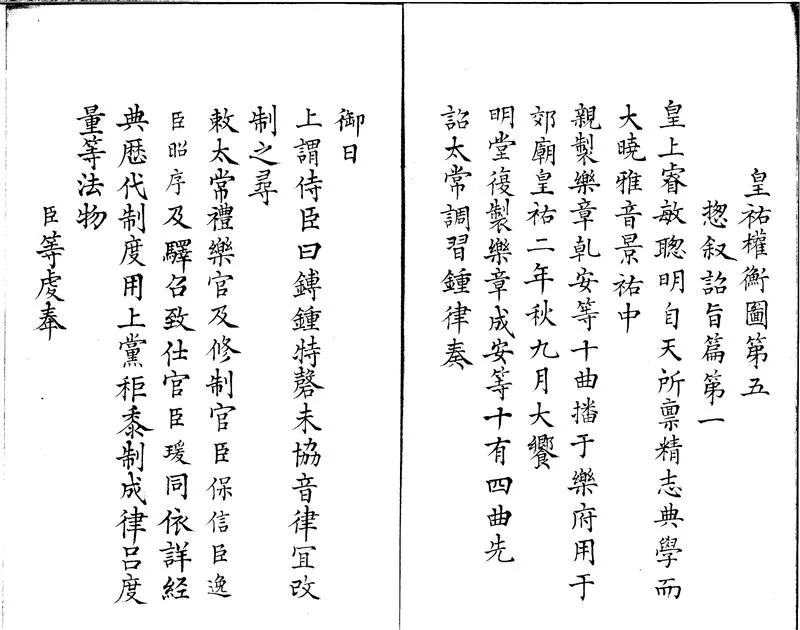 皇祐權衡圖第五
揔叙詔旨篇第一
皇上睿敏聦明自天所禀精志典學而
大曉雅音景祐中
親製樂章乹安等十曲播于樂府用于
郊廟皇祐二年秋九月大饗
明堂復製樂章成安等十有四曲先
詔太常調習鍾律奏
御日
上謂侍臣曰鎛鍾特磬未協音律冝改
制之尋
敕太常禮樂官及修制官臣保信臣逸
臣昭序及驛召致仕官臣瑗同依詳經
典歴代制度用上黨秬黍制成律吕度
量等法物
臣等虔奉